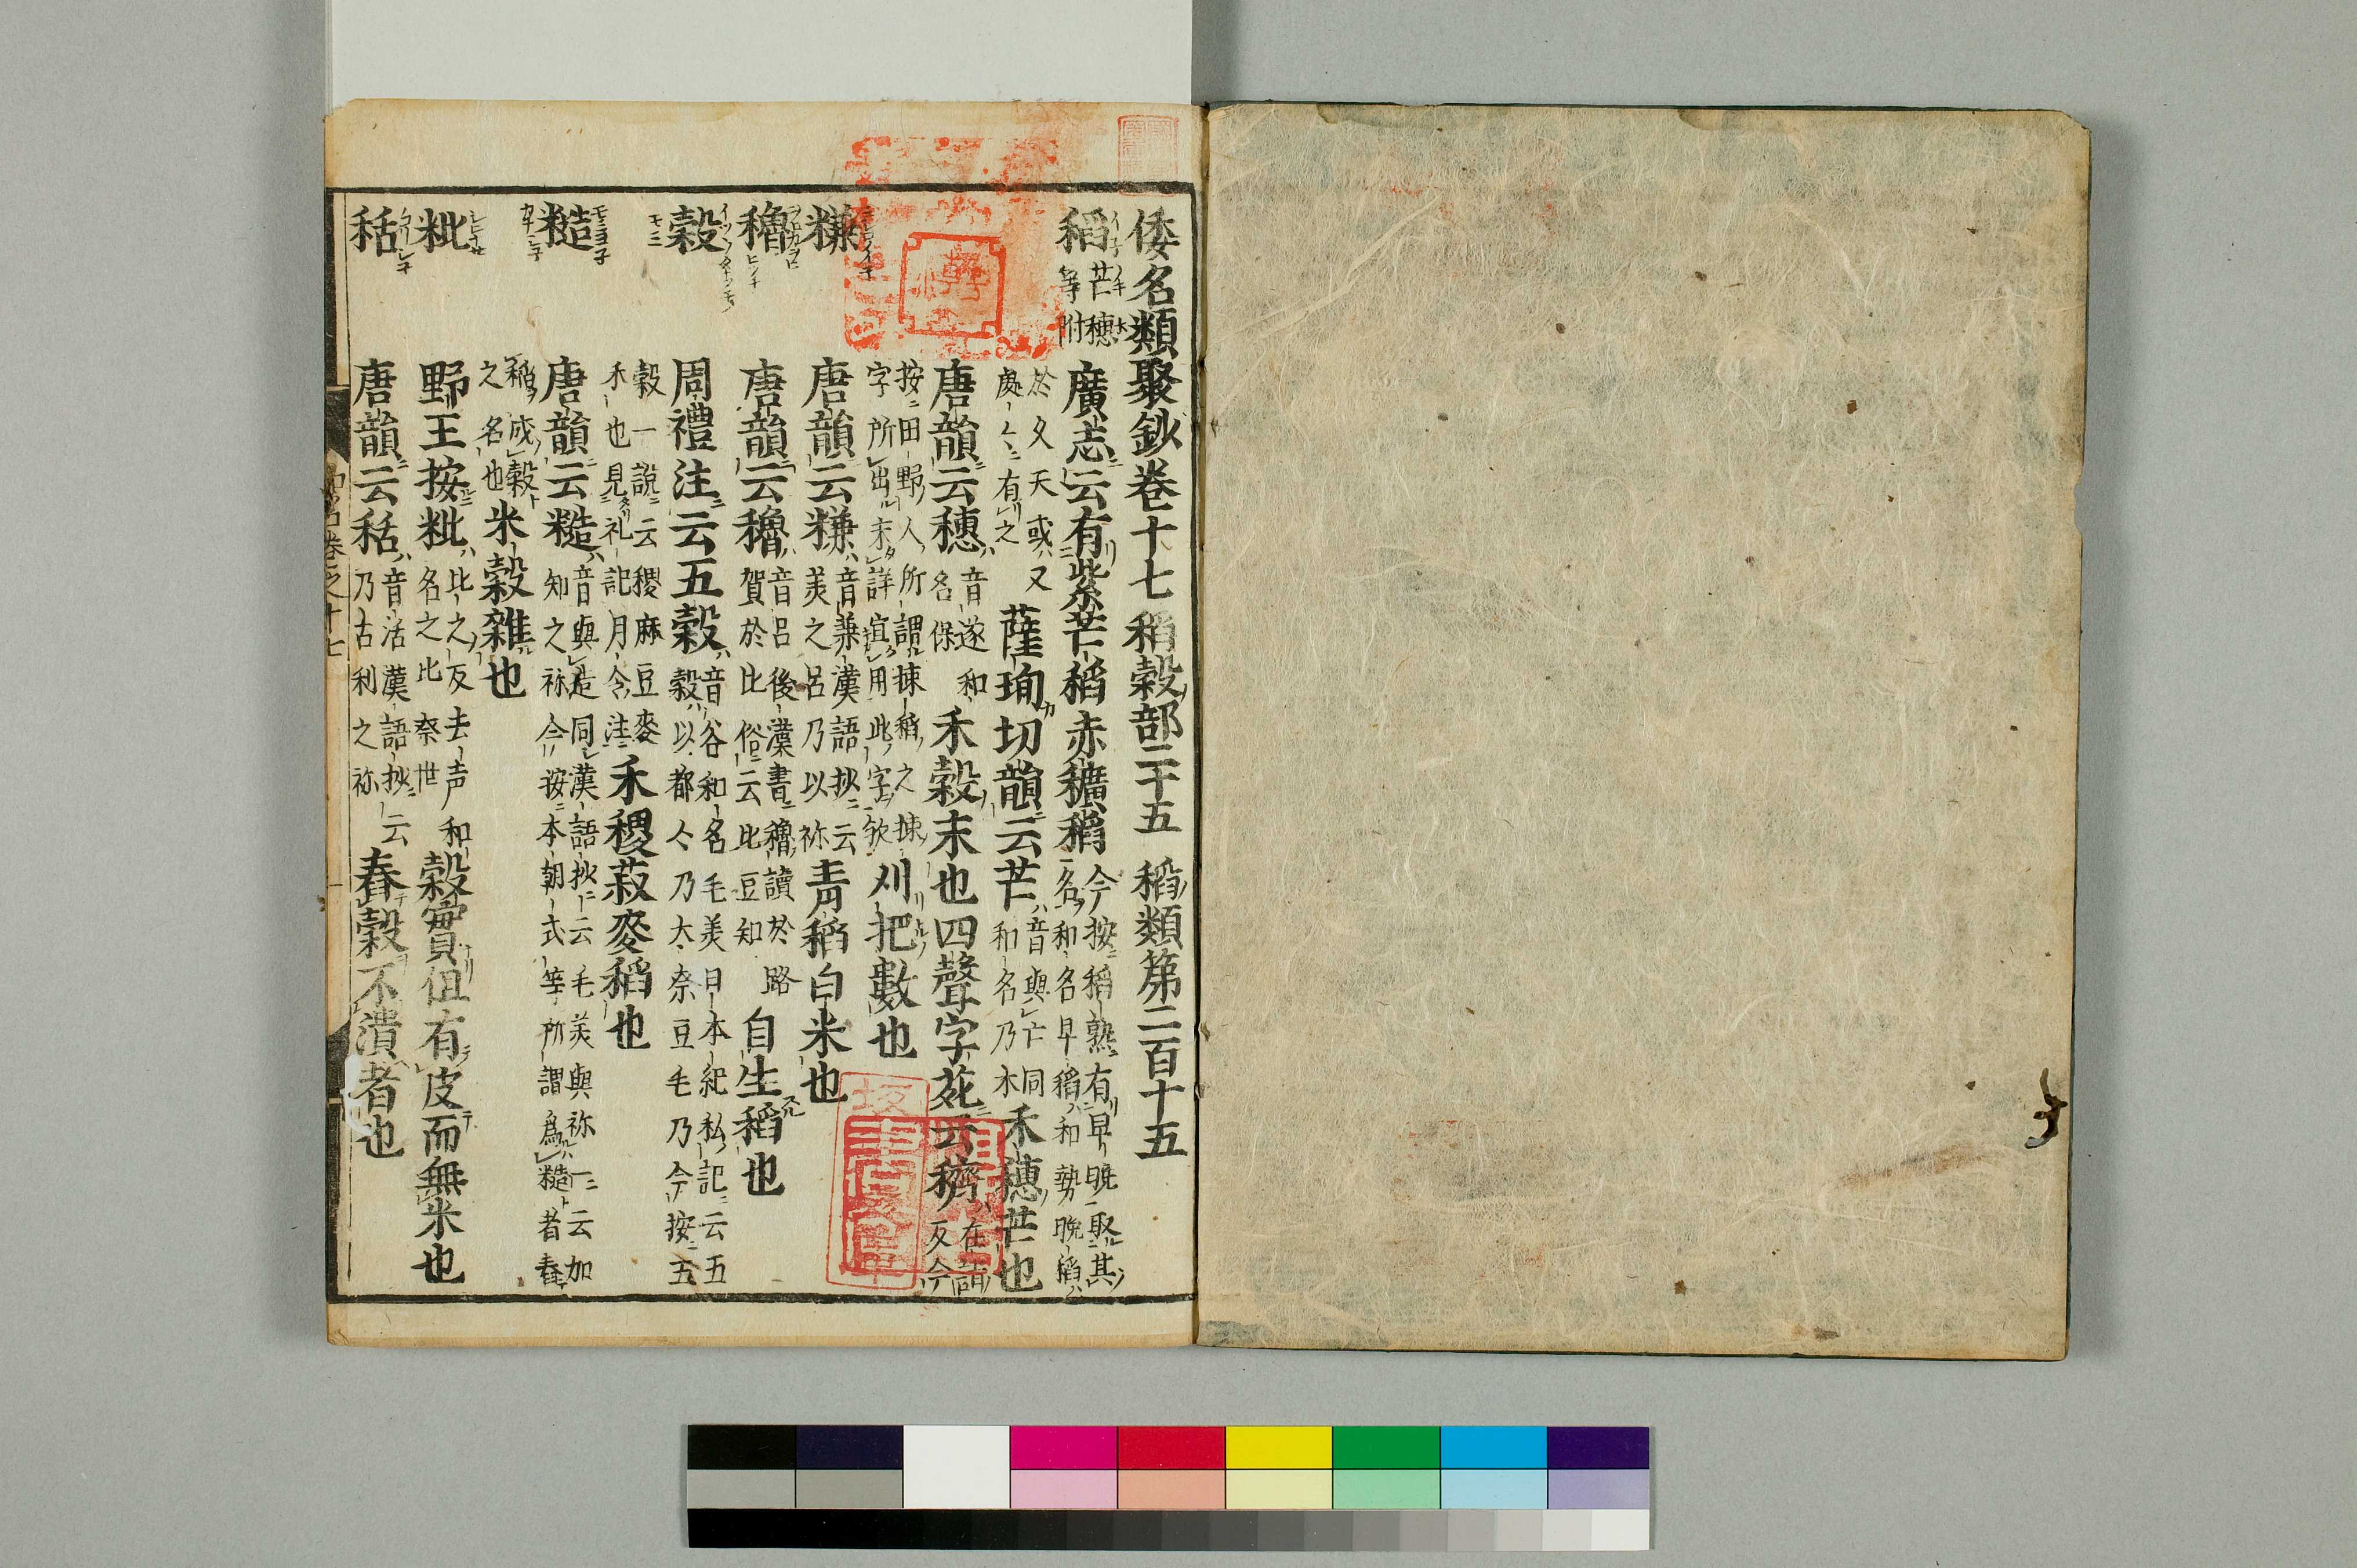 倭名類聚鈔卷十七 稻穀部二十五 稻類第二百十五
稻 芒穗等附 廣志云有紫芒稻赤穬稻 今按稻熟有早晚取其名和名早稻和勢晚稻
於久天或又處々有之 薩珣切韻云芒 音與亡同和名乃木 禾穗芒也
唐韻云穗 音遂和名保 禾穀末也四聲字苑云穧 在詣反今
按田野人所謂揀稻之揀字所出未詳宜用此字歟 刈把數也
䊠 唐韻云䊠 音兼漢語抄云美之呂乃以祢 青稻白米也
穭 唐韻云穭 音呂後漢書穭讀於路賀於比俗云比豆知 自生稻也
穀 周禮注云五穀 音谷和名毛美日本紀私記云五穀以都々乃太奈豆毛乃今按五
穀一說云稷麻豆麥禾也見礼記月令注 禾稷菽麥稻也
糙 唐韻云糙 音與造同漢語抄云毛美與祢一云加知之祢今按本朝式等所謂爲糙者舂
稻成穀之名也 米穀雜也
粃 野王按粃 比之反去声和名之比奈世 穀實但有皮而無米也
秳 唐韻云秳 音活漢語抄云乃古利之祢 舂穀不潰者也
和名卷之十七 一